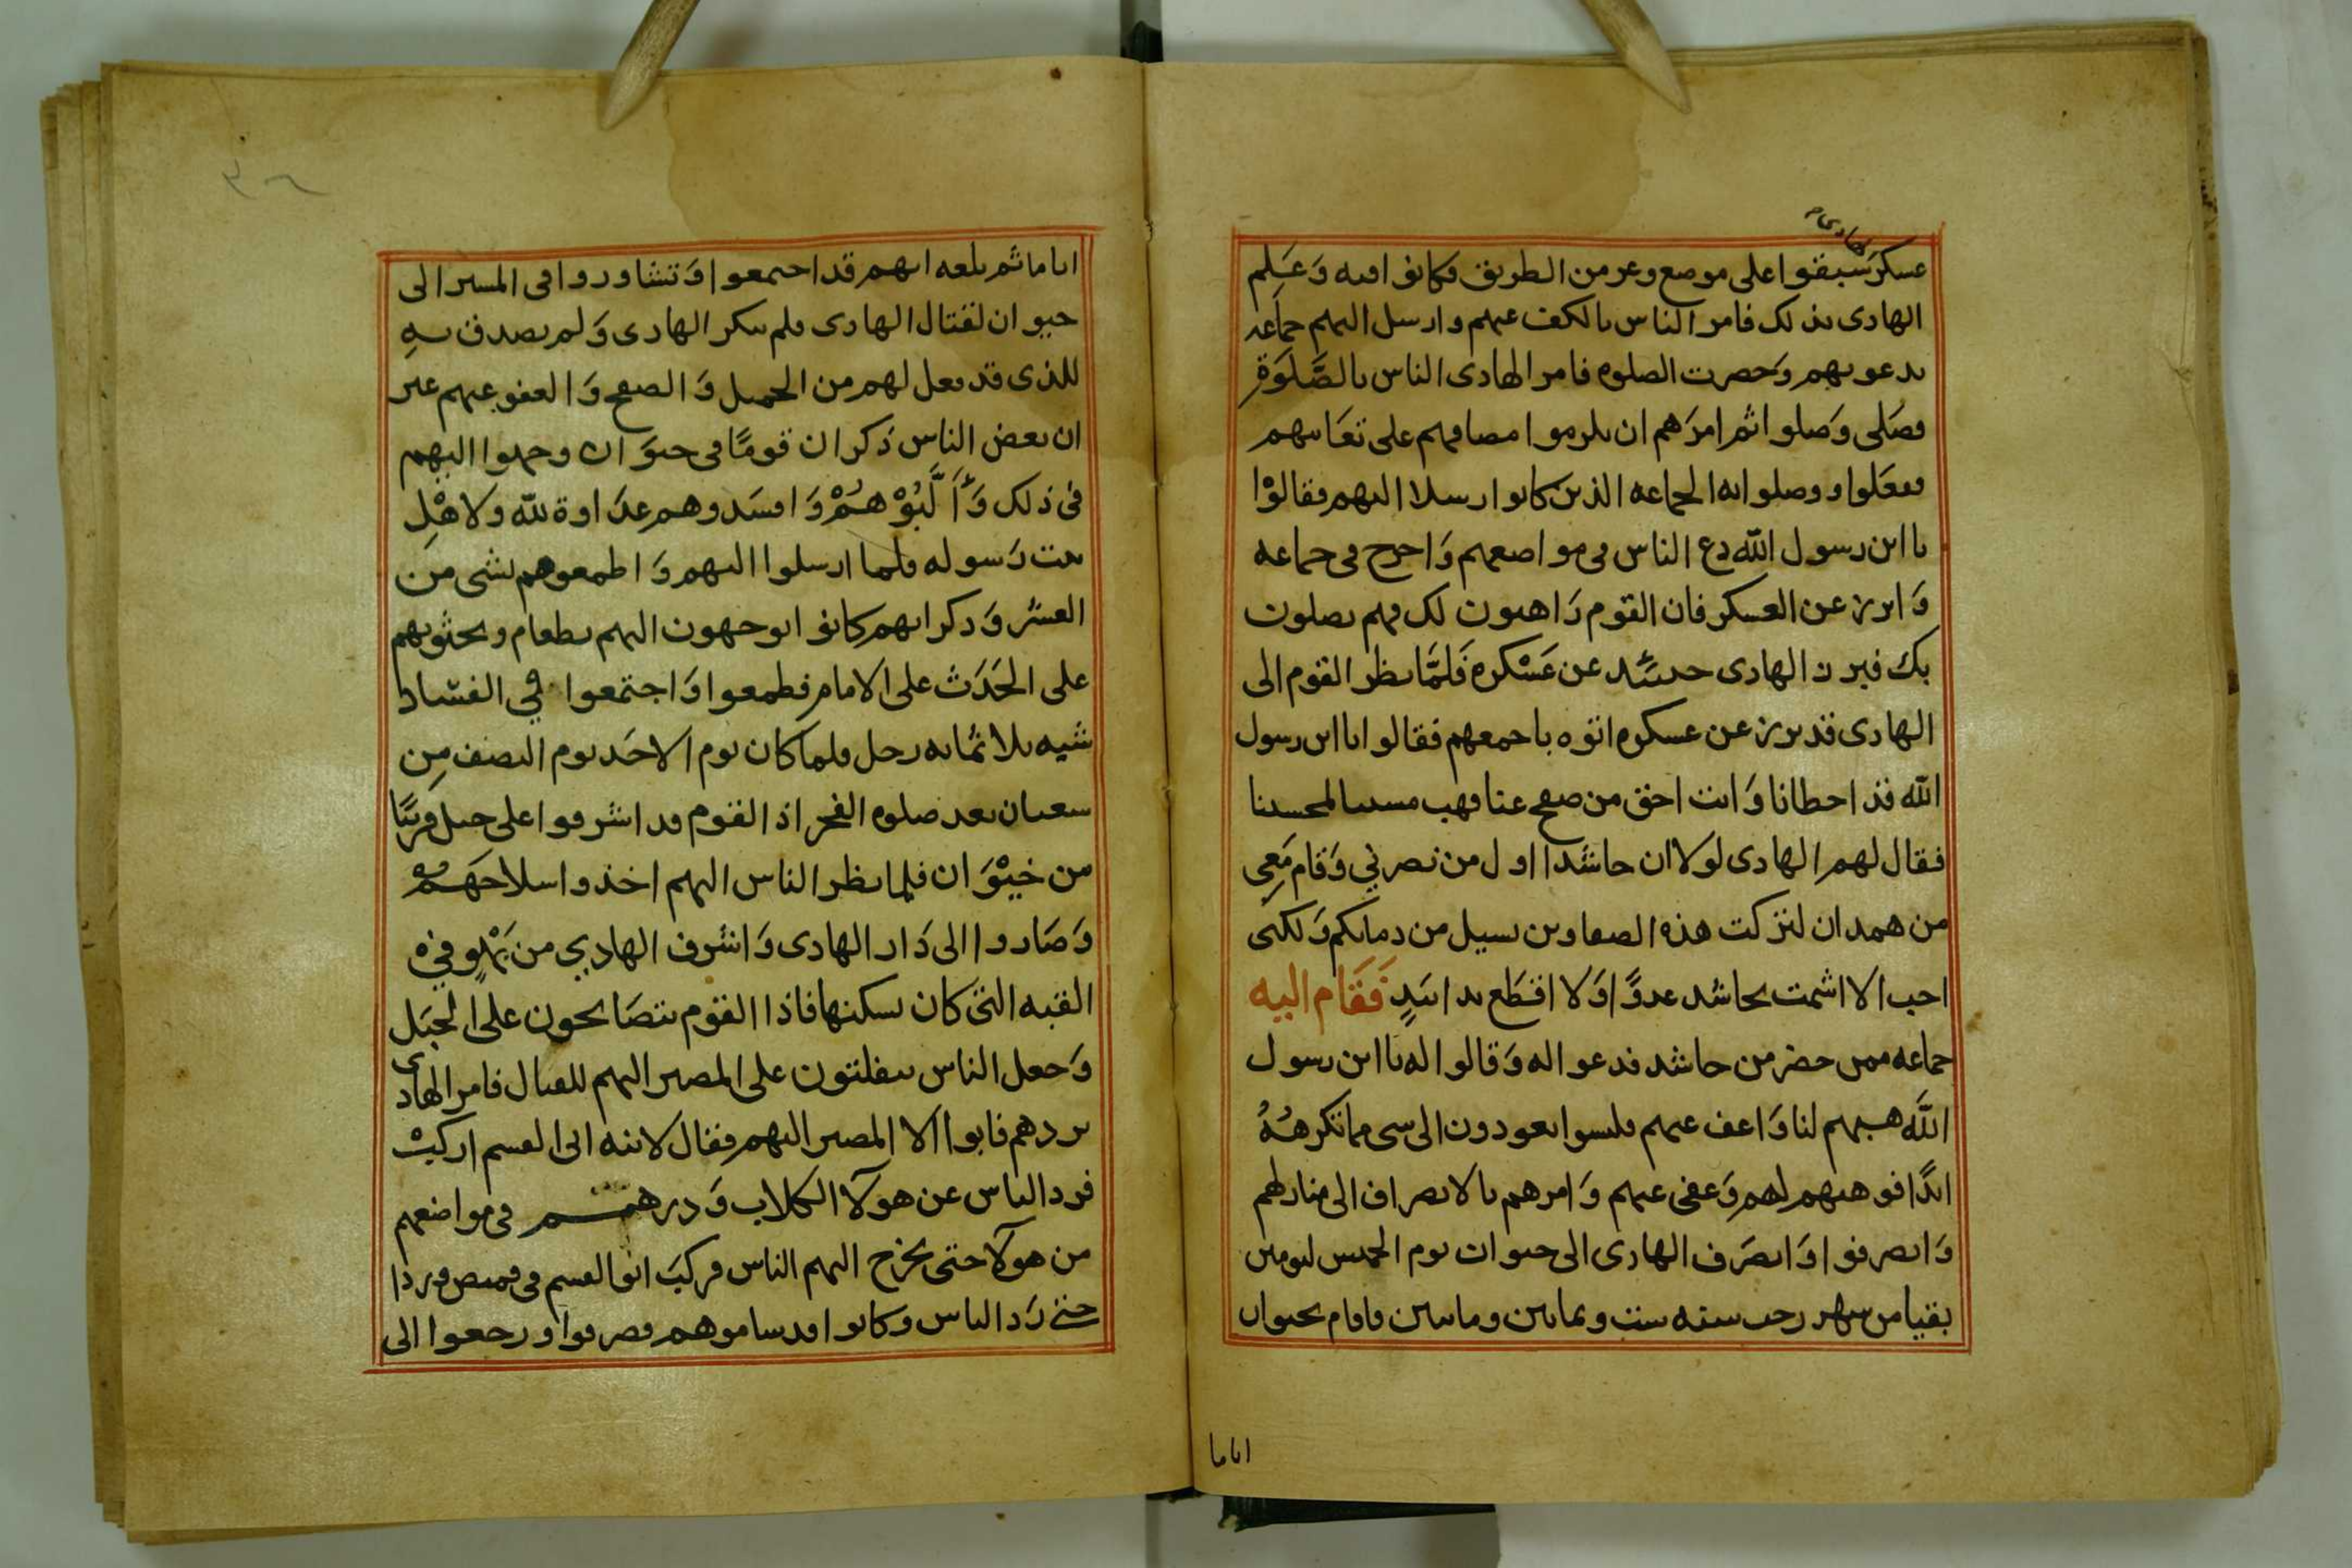 الهادى
عسكر سبقوا على موضع وعر من الطريق فكانوا فيه وَعَلِم
الهادى بذلك فامر الناس بالكف عنهم وارسل اليهم جماعه
يدعونهم وَحضرت الصلوه فامر الهادى الناس بالصَّلَوَةِ
فصَلى وَصلوا ثم امرَهم ان يلزموا مصافهم على تعَابيهم
ففعَلوا ووصلوا اليه الجماعه الذين كانوا ارسلا اليهم فقالوْا
يا ابن رسول الله دع الناس فى مواضعهم وَاخرج فى جماعه
وَابرز عن العسكر فان القوم رَاهبون لك فهم يصلون
بك فبرز الهادى حينئذ عن عَسْكره فَلمَّا نظر القوم الى
الهادى قد برز عن عسكره اتوه باجمعهم فقالوا يا ابن رسول
الله قد اخطانا وَانت احق من صفح عنا فهب مسيىنا لمحسننا
فقال لهم الهادى لولا ان حاشدا اول من نصرني وَقام مَعِى
من همدان لتركت هذه الصفا وبن تسيل من دمائكم وَلكنى
احب الا اشمت بحاشد عدوًّا وَلا اقطَع يدا بيَدٍ فَقَام اليه
جماعه ممن حضر من حاشد فدعوا له وَقالوا له يا ابن رسول
اللَّه هبهم لنا وَاعف عنهم فليسوا يعودون الى شى مما تكرههُ
ابدًا فوهبهم لهم وَعفى عنهم وَامرهم بالانصراف الى منازلهم
وَانصرفوا وَانصَرف الهادى الى خيوان يوم الخميس ليومين
بقيا من شهر رجب سنه ست وثمانين ومايتين فاقام بخيوان
اياما
اياما ثم بلغه انهم قد اجتمعوا وَتشاوروا فى المسير الى
خيوان لقتال الهادى فلم ينكر الهادى وَلم يصدق بهِ
للذى قد فعل لهم من الجميل وَالصفح وَالعفو عنهم غير
ان بعض الناس ذكر ان قومًا فى خيوَان وجهوا اليهم
فى ذلك وَأَلَّبُوْهُمْ وَافسَدوهم عدَاوة لله ولاهْلِ
بيت رَسوله فلما ارسلوا اليهم وَاطمعوهم بشى من
العشر وَذكر انهم كانوا يوجهون اليهم بطعام ويحثونهم
على الحَدَث على الامام فطمعوا وَاجتمعوا في الفسَاد
شبيه بثلاثمائه رجل فلما كان يوم الاحَد يوم النصف مِن
شعبان بعد صلوه الفجر اذ القوم قد اشرفوا على جبل قريبًا
من خيْوَان فلما نظر الناس اليهم اخذوا سلاحَهم
وَصَاروا الى دَار الهادى وَاشرف الهادي من بَهْوٍ في
القبه التى كان يسكنها فاذا القوم يتصَايحون على الجبَل
وَجعل الناس يتفلتون على المصير اليهم للقتال فامر الهادى
بردهم فابوا الا المصير اليهم فقال لابنه ابى القسم اركبْ
فرد الناس عن هولآ الكلاب وَذرهم فى مواضعهم
من هولآ حتى يخرج اليهم الناس فركبَ ابو القسم فى قميص وردا
حتى رَد الناس وكانوا قد ساموهم فصرفوا ورجعوا الى